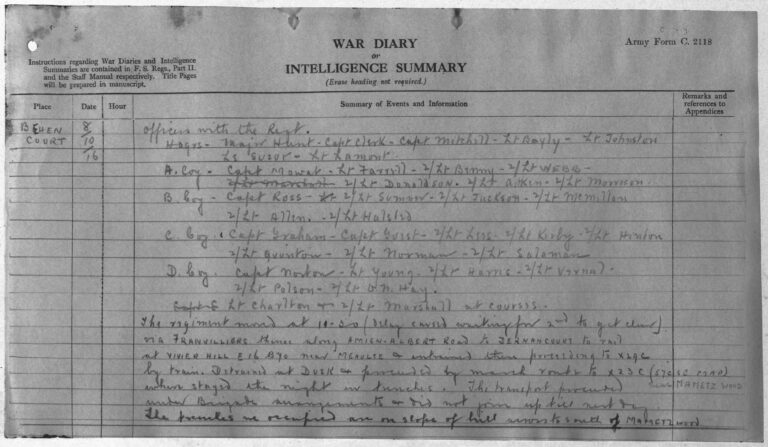 WAR DIARY
or
INTELLIGENCE SUMMARY
(Erase heading not required.)
Army Form C. 2118
Instructions regarding War Diaries and Intelligence
Summaries are contained in F. S. Regs., Part II.
and the Staff Manual respectively. Title Pages
will be prepared in manuscript.
Place Date Hour Summary of Events and Information Remarks and references to Appendices
BEHEN COURT 8/10/16 Officers with the Regt.
Hqrs - Major Hunt - Capt Clerk - Capt Mitchell - Lt Bayly - Lt Johnston
Lt Lamont
A. Coy - Capt Mowat - Lt Farrell - 2/Lt Benny - 2/Lt WEBB -
2/Lt Marshall 2/Lt DONALDSON. 2/Lt Aitkin - 2/Lt Morrison
B. Coy - Capt Ross - 2/Lt Sumner - 2/Lt Jackson - 2/Lt McMillan
2/Lt Allen. - 2/Lt Halsted
C. Coy. Capt Graham - Capt Guest - 2/Lt Lees - 2/Lt Kirby - 2/Lt Hinton
2/Lt Quinton - 2/Lt Norman - 2/Lt Salaman
D. Coy. Capt Norton - Lt Young - 2/Lt Harris - 2/Lt Vernal -
2/Lt Polson - 2/Lt D.N. Hay.
Lt Charlton & 2/Lt Marshall at courses.
The regiment moved at 10.20 (delay caused waiting for 2nd to get clear)
via FRANVILLIERS thence along AMIEN-ALBERT ROAD to DERNANCOURT to
at VIVIER HILL E16 near MEAULTE & entrained there proceeding to
by train. Detrained at DUSK & proceeded by march route to X23C (57C SE MAP)
where stayed the night in trenches. The transport proceeded near MAMETZ WOOD
under Brigade arrangements & did not join up till next day.
The trenches we occupied are on slope of hill south of MAMETZ WOOD